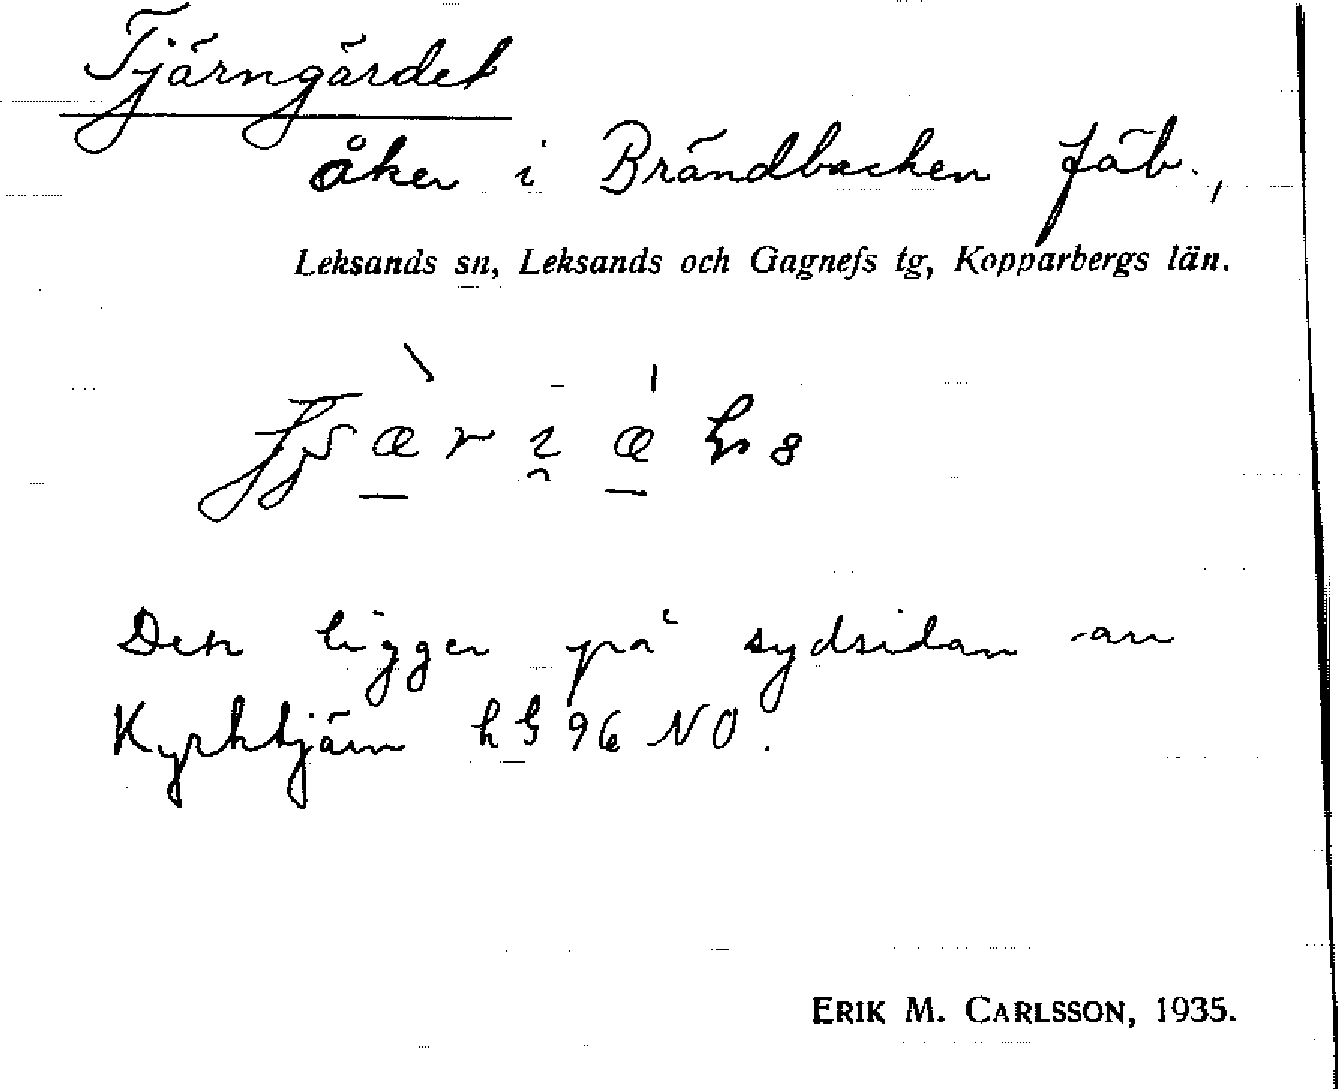 Tjärngärdet
åker i Brändbacken fäb.,
Leksands sn, Leksands och Gagnefs tg, Kopparbergs län.
Den ligger på sydsidan av
Kyrktjärn h§ 96 NO.
ERIK M. CARLSSON, 1935.